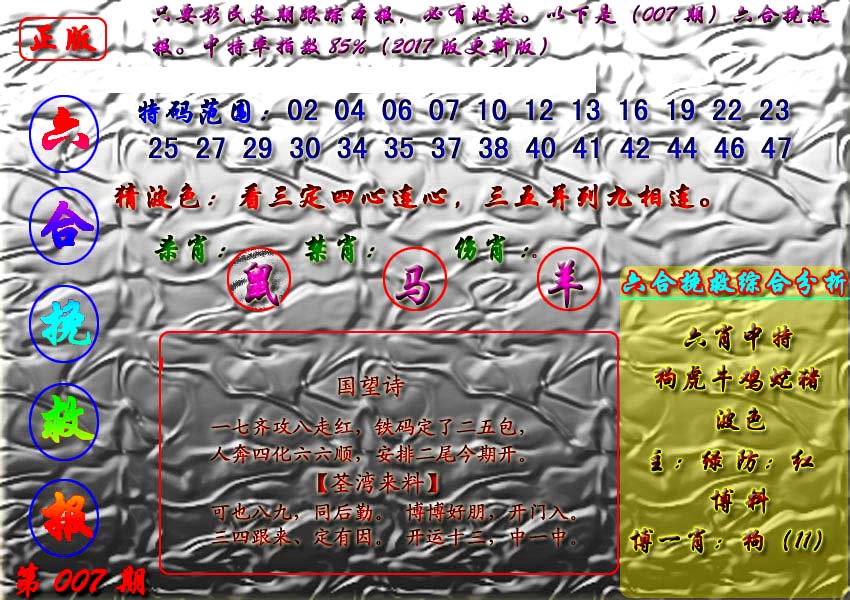 正版
只要彩民长期跟踪本报，必有收获。以下是（007期）六合挽救
报。中特率指数85%（2017版更新版）
六合挽救报
第007期
特码范围：02 04 06 07 10 12 13 16 19 22 23
25 27 29 30 34 35 37 38 40 41 42 44 46 47
猜波色：看三定四心连心，三五并到九相连。
杀肖：鼠 禁肖：马 伤肖：羊
国望诗
一七齐攻八走红，铁码定了二五包，
人奔四化六六顺，安排二尾今期开。
【荃湾来料】
可也八九，同后勤。 博博好朋，开门入。
三四跟来、定有因。 开运十三，中一中。
六合挽救综合分析
六肖中特
狗虎牛鸡蛇猪
波色
主：绿防：红
博料
博一肖：狗（11）